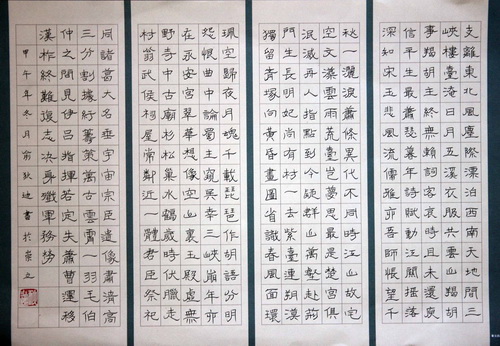 支離東北風塵際漂泊西南天地間三
峽樓臺淹日月五溪衣服共雲山羯胡
事羯胡主終無賴詞客哀時且未還庾
信平生最蕭瑟暮年詩賦動江關搖落
深知宋玉悲風流儒雅亦吾師悵望千
秋一灑淚蕭條異代不同時江山故宅
空文藻雲雨荒臺豈夢思最是楚宮俱
泯滅舟人指點到今疑群山萬壑赴荊
門生長明妃尚有村一去紫臺連朔漠
獨留青塚向黃昏畫圖省識春風面環
珮空歸夜月魂千載琵琶作胡語分明
怨恨曲中論蜀主窺吳幸三峽崩年亦
在永安宮翠華想像空山裏玉殿虛無
野寺中古廟杉松巢水鶴歲時伏臘走
村翁武侯祠屋常鄰近一體君臣祭祀
同諸葛大名垂宇宙宗臣遺像肅清高
三分割據紆籌策萬古雲霄一羽毛伯
仲之間見伊呂指揮若定失蕭曹運移
漢祚終難復志決身殲軍務勞
甲午年冬月俞迪書於